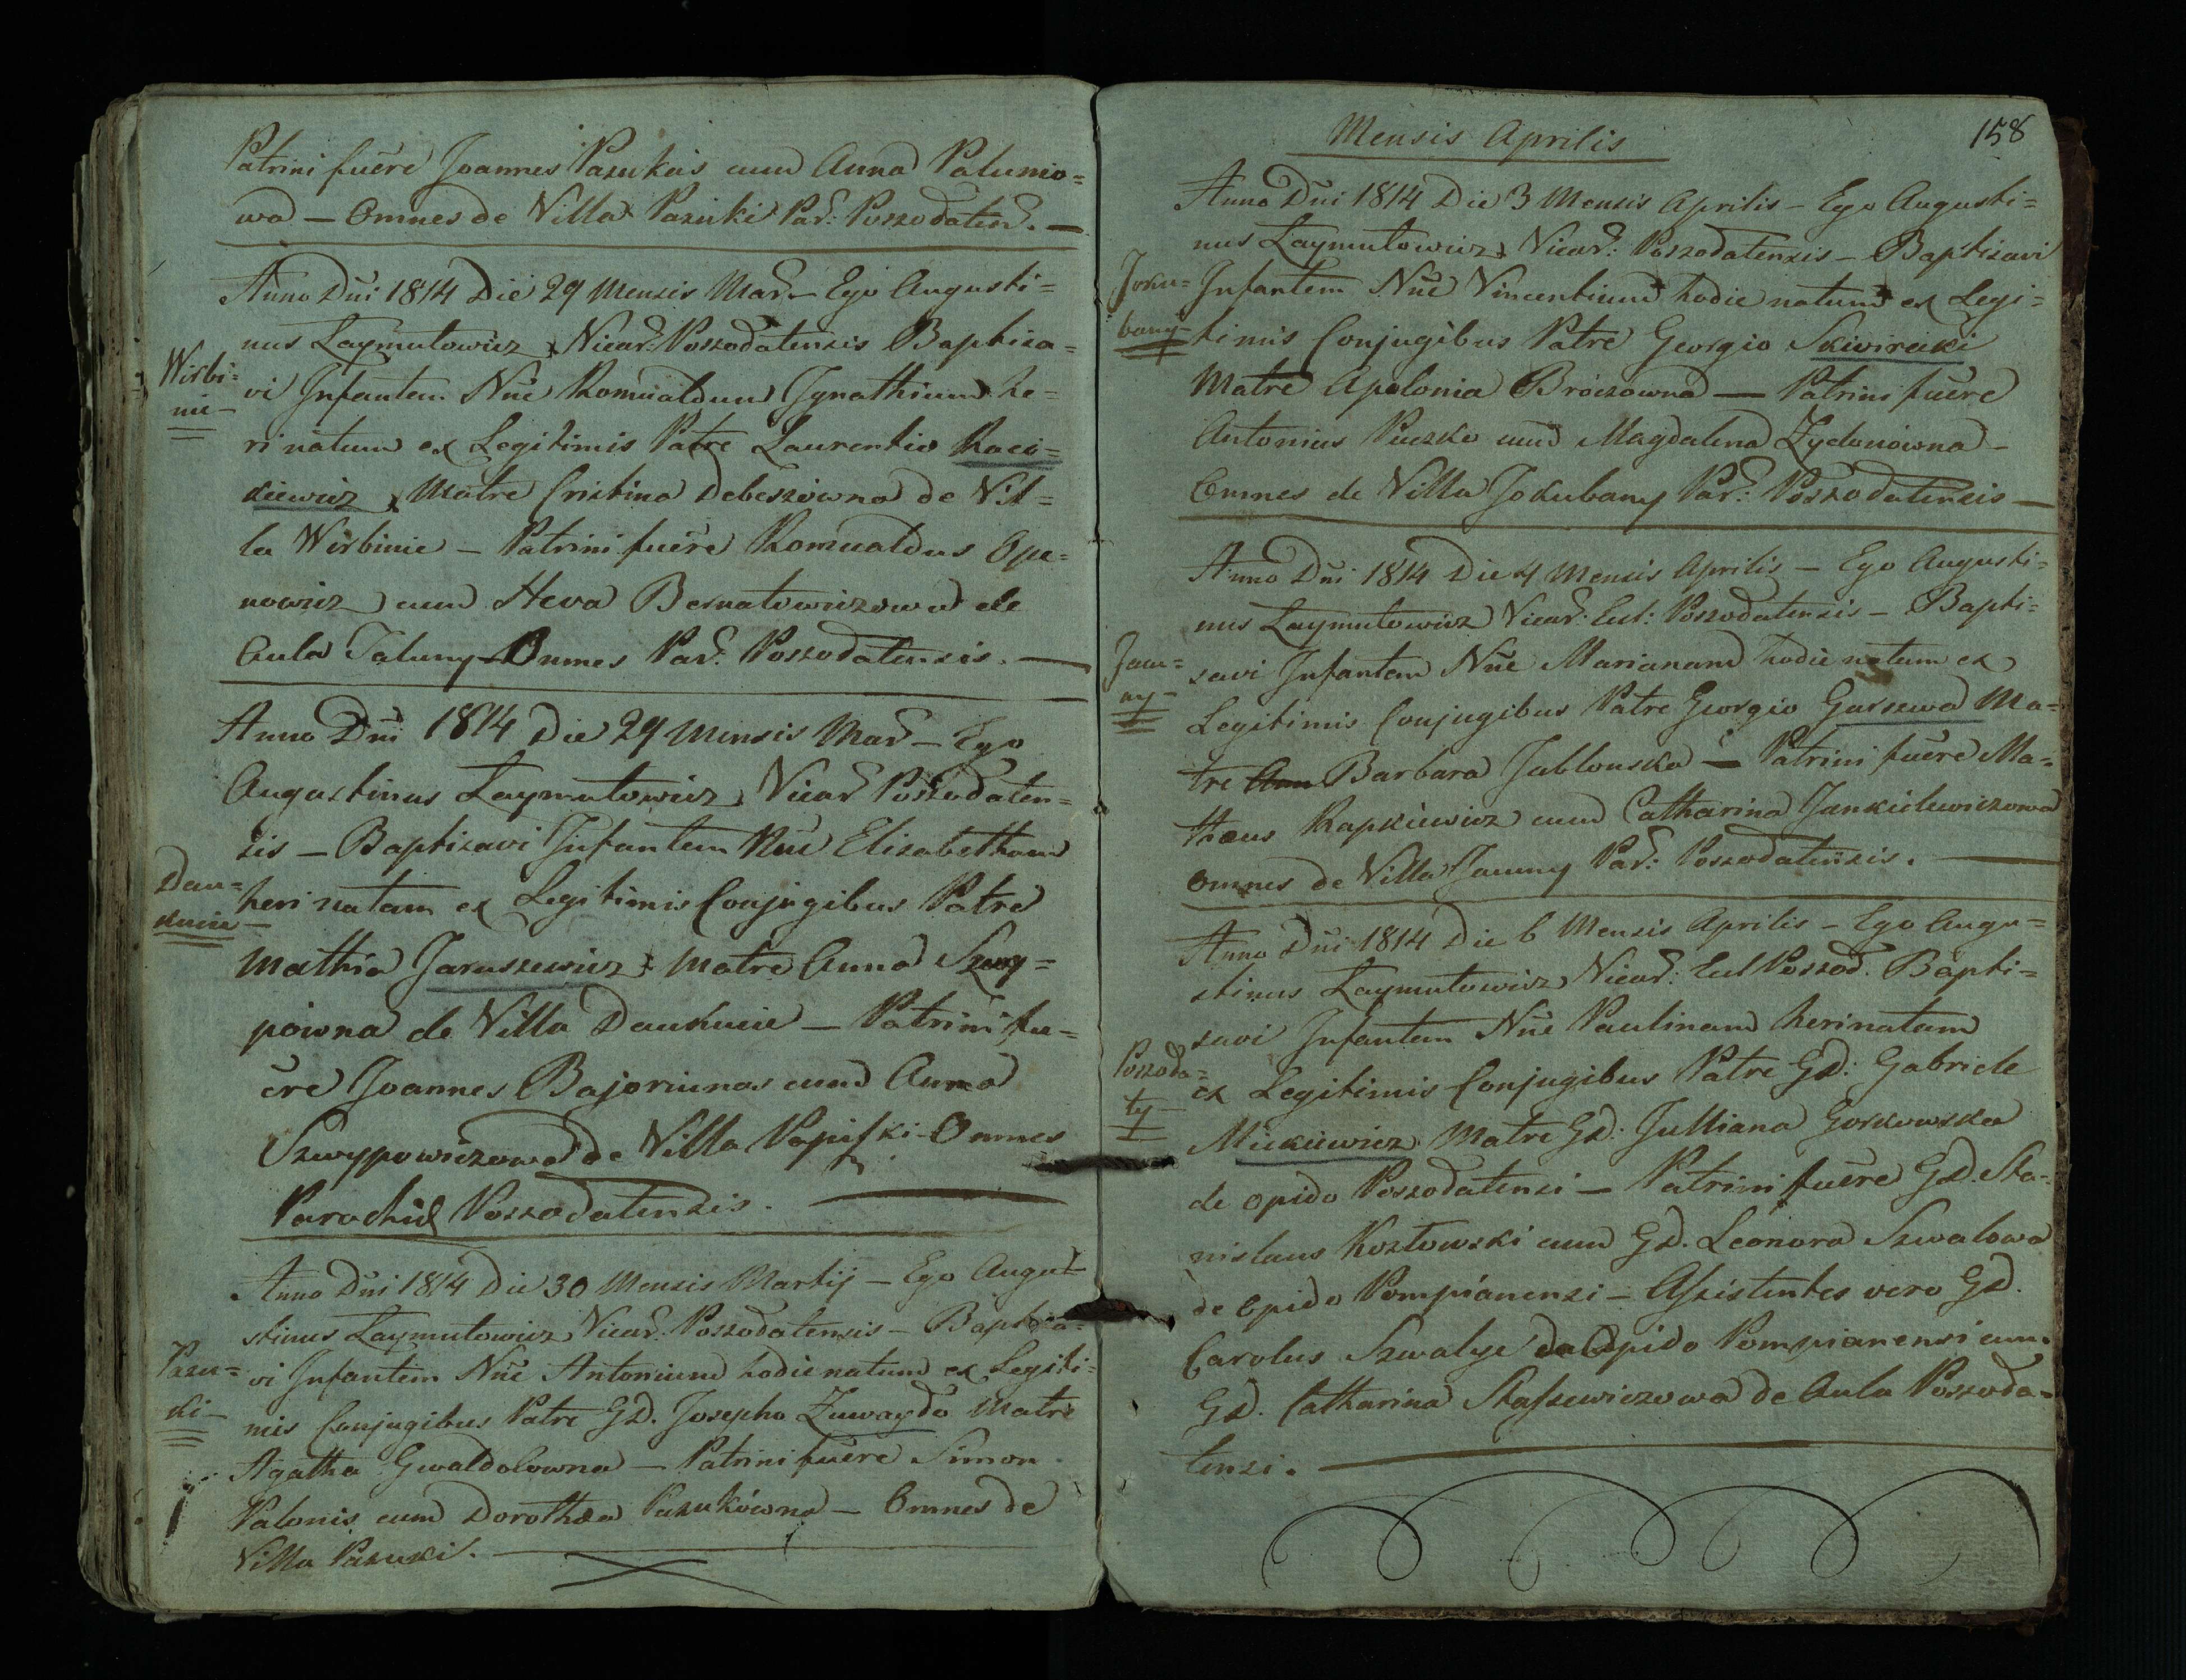 Patrini fuêre Joannes Pazukas cum Anna Palunio=
wa — Omnes de Villa Pazuki Par: Poszodaten. —
Anno Dni 1814 Die 29 Mensis Mar. — Ego Augusti=
nus Laymutowicz Vicar: Poszodatensis Baptiza=
Wirbi=
nie —
vi Infantem Nne Romualdum Ignathium he=
ri natum ex Legitimis Patre Laurentio Raco=
kiewicz Matre Cristina Debeszowna de Vil=
la Wirbinie — Patrini fuêre Romualdus Ope=
nowicz cum Heva Bernatowiczowa de
Aula Taluny — Omnes Par: Poszodatensis. —
Anno Dni 1814 Die 29 Mensis Mar — Ego
Augustinus Laymutowicz Vicar Poszodaten=
sis — Baptizavi Infantem Nne Elisabetham
Dau=
kucie —
heri natam ex Legitimis Conjugibus Patre
Mathia Jaruszewicz Matre Anna Szwy=
pówna de Villa Daukucie — Patrini fu=
ere Joannes Bajoriunas cum Anna
Szwypowiczowa de Villa Papiszki Omnes
Parochiæ Poszodatensis.
Anno Dni 1814 Die 30 Mensis Martij — Ego Augu=
stinus Laymutowicz Vicar: Poszodatensis — Baptiza=
Pazu=
ki —
vi Infantem Nne Antonium hodie natum ex Legiti=
mis Conjugibus Patre GD. Josepho Zuwaydo Matre
Agatha Gwaldolowna — Patrini fuêre Simon
Palonis cum Dorothea Pazukówna — Omnes de
Villa Pazuki.
158
Mensis Aprilis
Anno Dni 1814 Die 3 Mensis Aprilis — Ego Augusti=
nus Laymutowicz Vicar: Poszodatensis — Baptizavi
Joku=
bany —
Infantem Nne Vincentium hodie natum ex Legi=
timis Conjugibus Patre Georgio Skwirecki
Matre Apolonia Broizowna — Patrini fuêre
Antonius Puszko cum Magdalena Zydonówna —
Omnes de Villa Jokubany Par: Poszodatensis —
Anno Dni 1814 Die 4 Mensis Aprilis — Ego Augusti=
nus Laymutowicz Vicar: Eccl: Poszodatensis — Bapti=
Jau=
ny —
zavi Infantem Nne Marianam hodie natam ex
Legitimis Conjugibus Patre Georgio Garszwa Ma=
tre Ann Barbara Jablonska — Patrini fuêre Ma=
thæus Rapkiewicz cum Catharina Jankielewiczowa
omnes de Villa Jauny Par: Poszodatensis.
Anno Dni 1814 Die 6 Mensis Aprilis — Ego Augu=
stinus Laymutowicz Vicar: Eccl Poszod. Bapti=
zavi Infantem Nne Paulinam heri natam
Poszoda=
ty —
ex Legitimis Conjugibus Patre GD: Gabriele
Mickiewicz Matre GD: Julliana Gorkowska
de opido Poszodatensi — Patrini fuêre GD. Sta=
nislaus Kozłowski cum GD. Leonora Szwalowa
de Opido Pompianensi — Assistentes vero GD.
Carolus Szwalye de Opido Pompianensi cum
GD. Catharina Staszewiczowa de Aula Poszoda=
tensi.